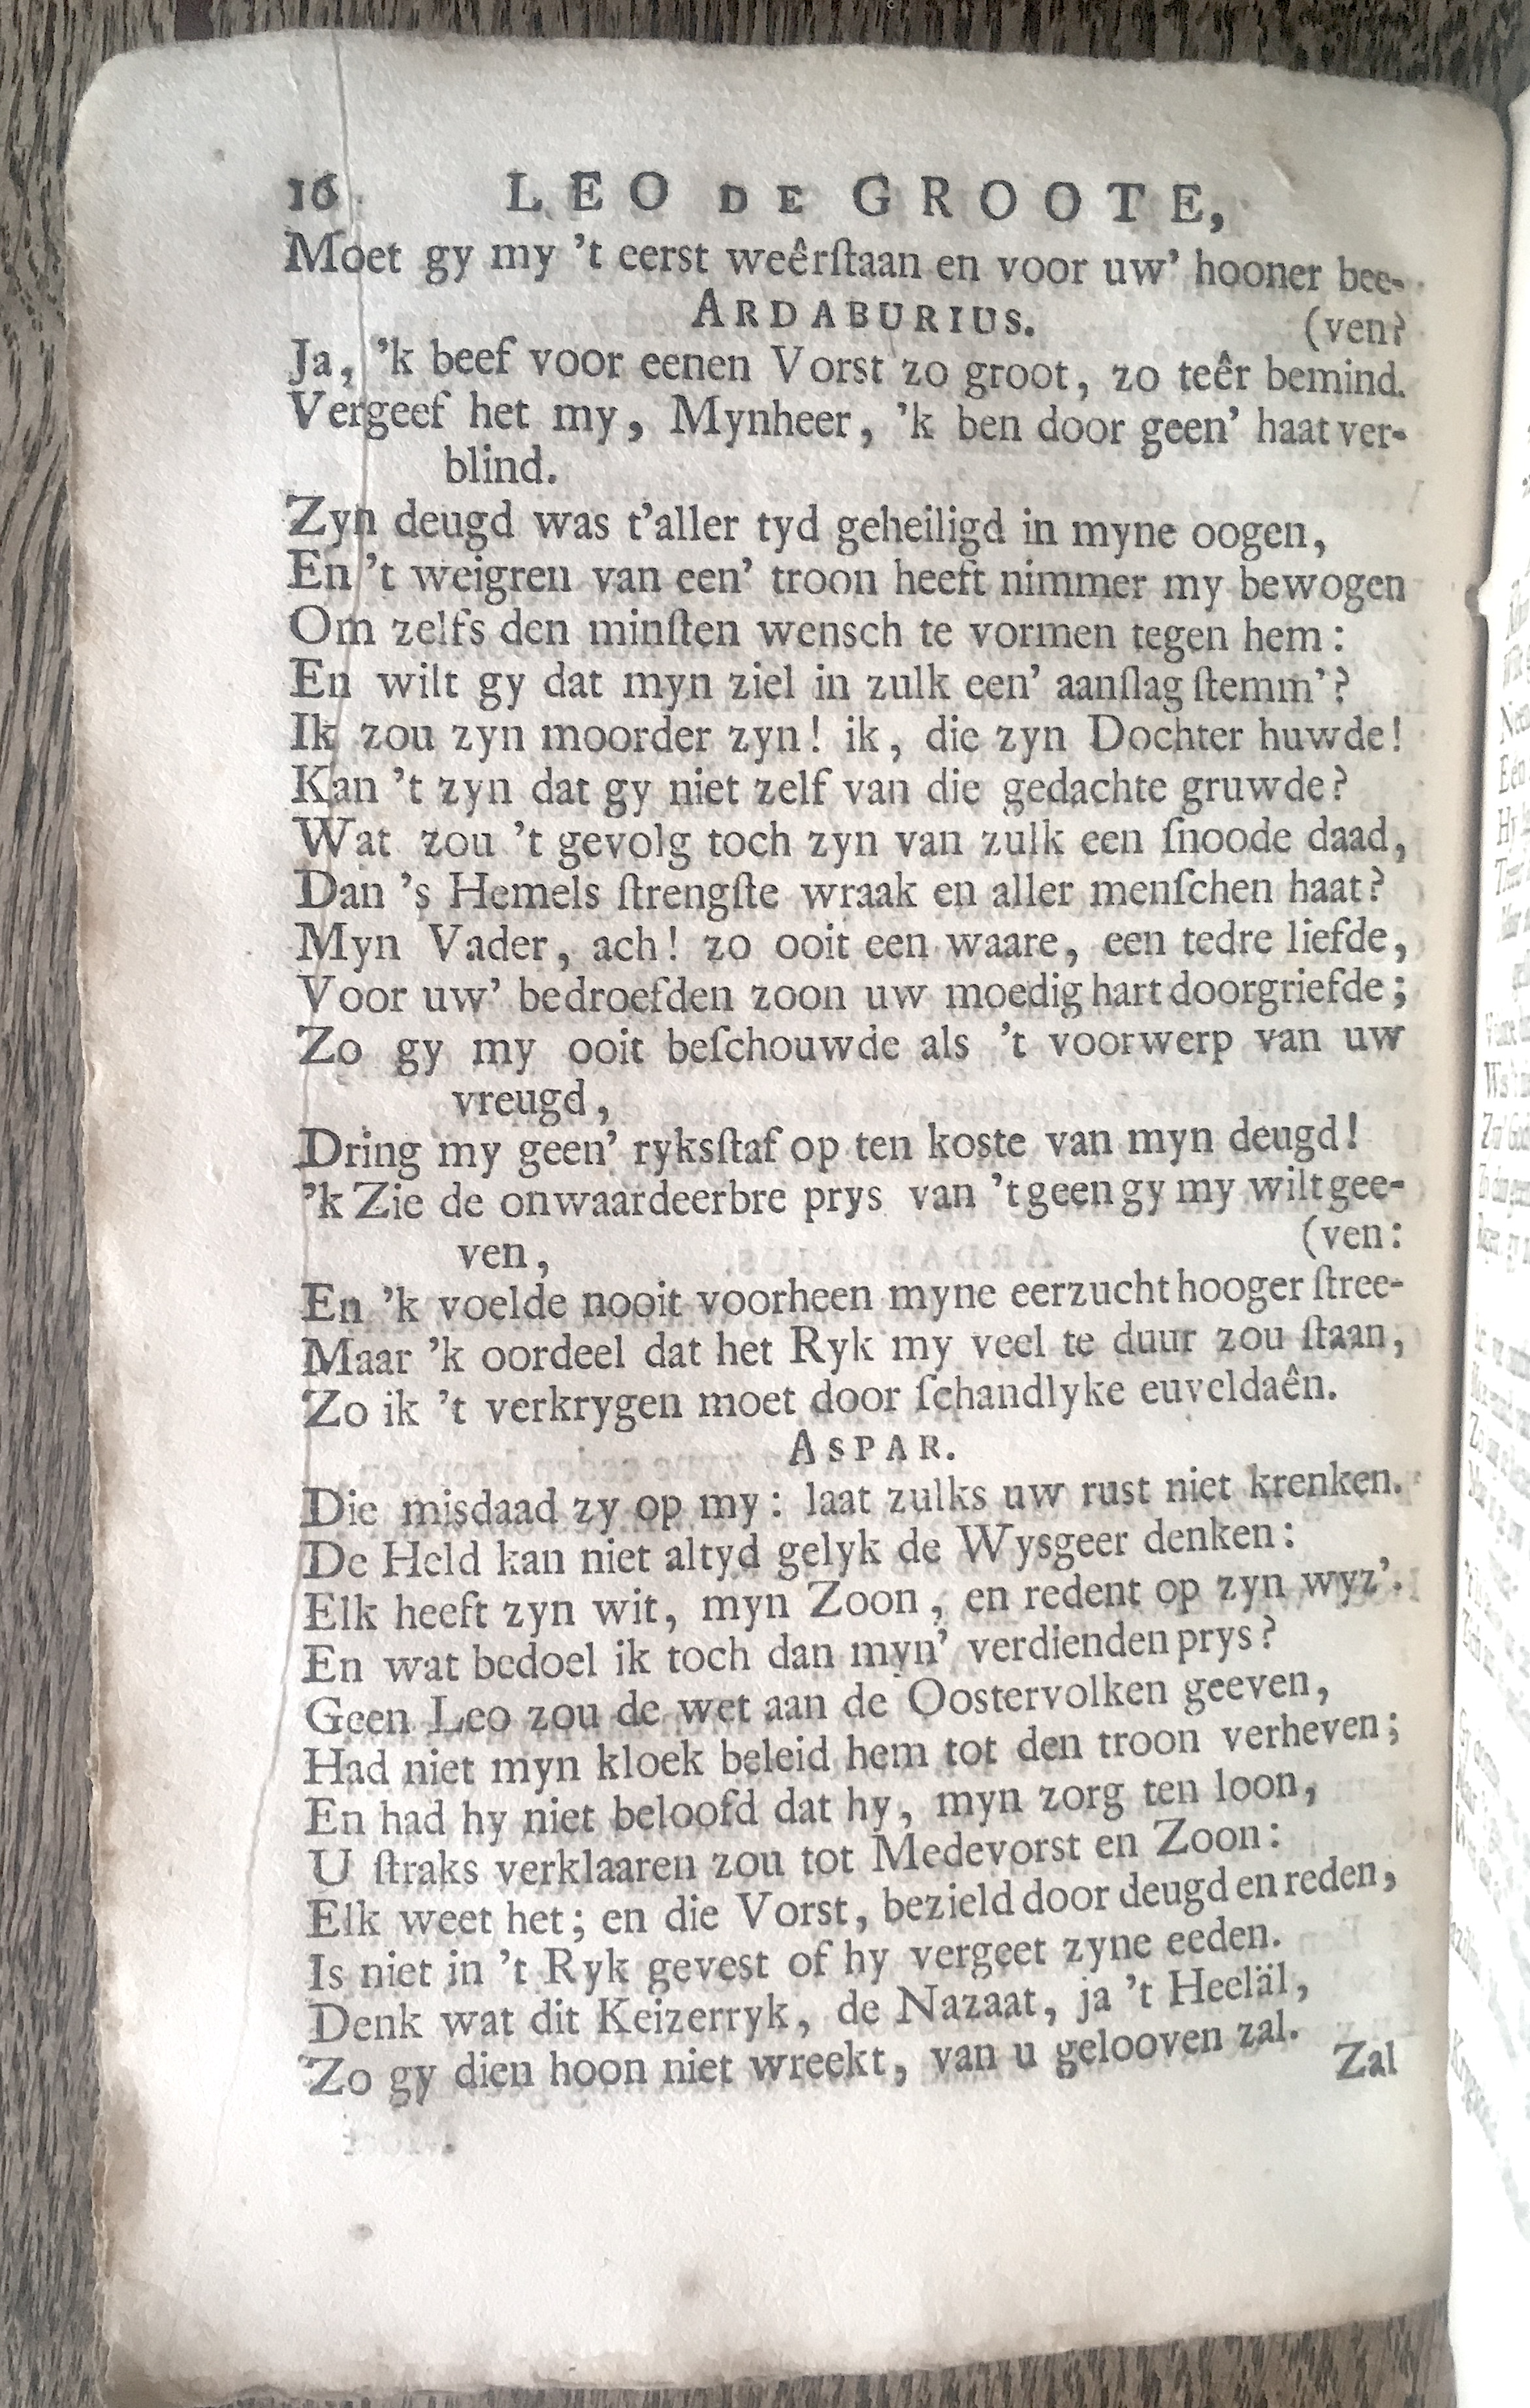 16 LEO DE GROOTE,
Moet gy my 't eerst weêrſtaan en voor uw' hooner bee-
ARDABURIUS. (ven?
Ja, 'k beef voor eenen Vorst zo groot, zo teêr bemind.
Vergeef het my, Mynheer, 'k ben door geen' haat ver-
blind.
Zyn deugd was t'aller tyd geheiligd in myne oogen,
En 't weigren van een' troon heeft nimmer my bewogen
Om zelfs den minſten wensch te vormen tegen hem:
En wilt gy dat myn ziel in zulk een' aanſlag ſtemm'?
Ik zou zyn moorder zyn! ik, die zyn Dochter huwde!
Kan 't zyn dat gy niet zelf van die gedachte gruwde?
Wat zou 't gevolg toch zyn van zulk een ſnoode daad,
Dan 's Hemels ſtrengſte wraak en aller menſchen haat?
Myn Vader, ach! zo ooit een waare, een tedre liefde,
Voor uw' bedroefden zoon uw moedig hart doorgriefde;
Zo gy my ooit beſchouwde als 't voorwerp van uw
vreugd,
Dring my geen' ryksſtaf op ten koste van myn deugd!
'k Zie de onwaardeerbre prys van 't geen gy my wilt gee-
ven, (ven:
En 'k voelde nooit voorheen myne eerzucht hooger ſtree-
Maar 'k oordeel dat het Ryk my veel te duur zou ſtaan,
Zo ik 't verkrygen moet door ſchandlyke euveldaên.
ASPAR.
Die misdaad zy op my: laat zulks uw rust niet krenken.
De Held kan niet altyd gelyk de Wysgeer denken:
Elk heeft zyn wit, myn Zoon, en redent op zyn wyz'.
En wat bedoel ik toch dan myn' verdienden prys?
Geen Leo zou de wet aan de Oostervolken geeven,
Had niet myn kloek beleid hem tot den troon verheven;
En had hy niet beloofd dat hy, myn zorg ten loon,
U ſtraks verklaaren zou tot Medevorst en Zoon:
Elk weet het; en die Vorst, bezield door deugd en reden,
Is niet in 't Ryk gevest of hy vergeet zyne eeden.
Denk wat dit Keizerryk, de Nazaat, ja 't Heeläl,
Zo gy dien hoon niet wreekt, van u gelooven zal.
Zal